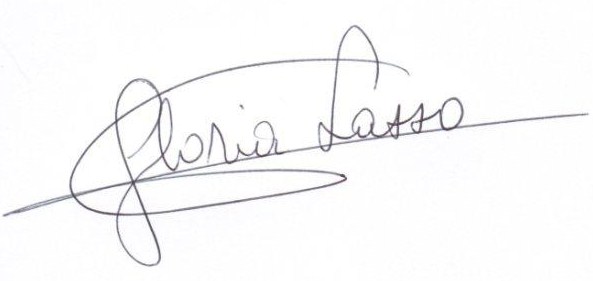 Gloria Lasso